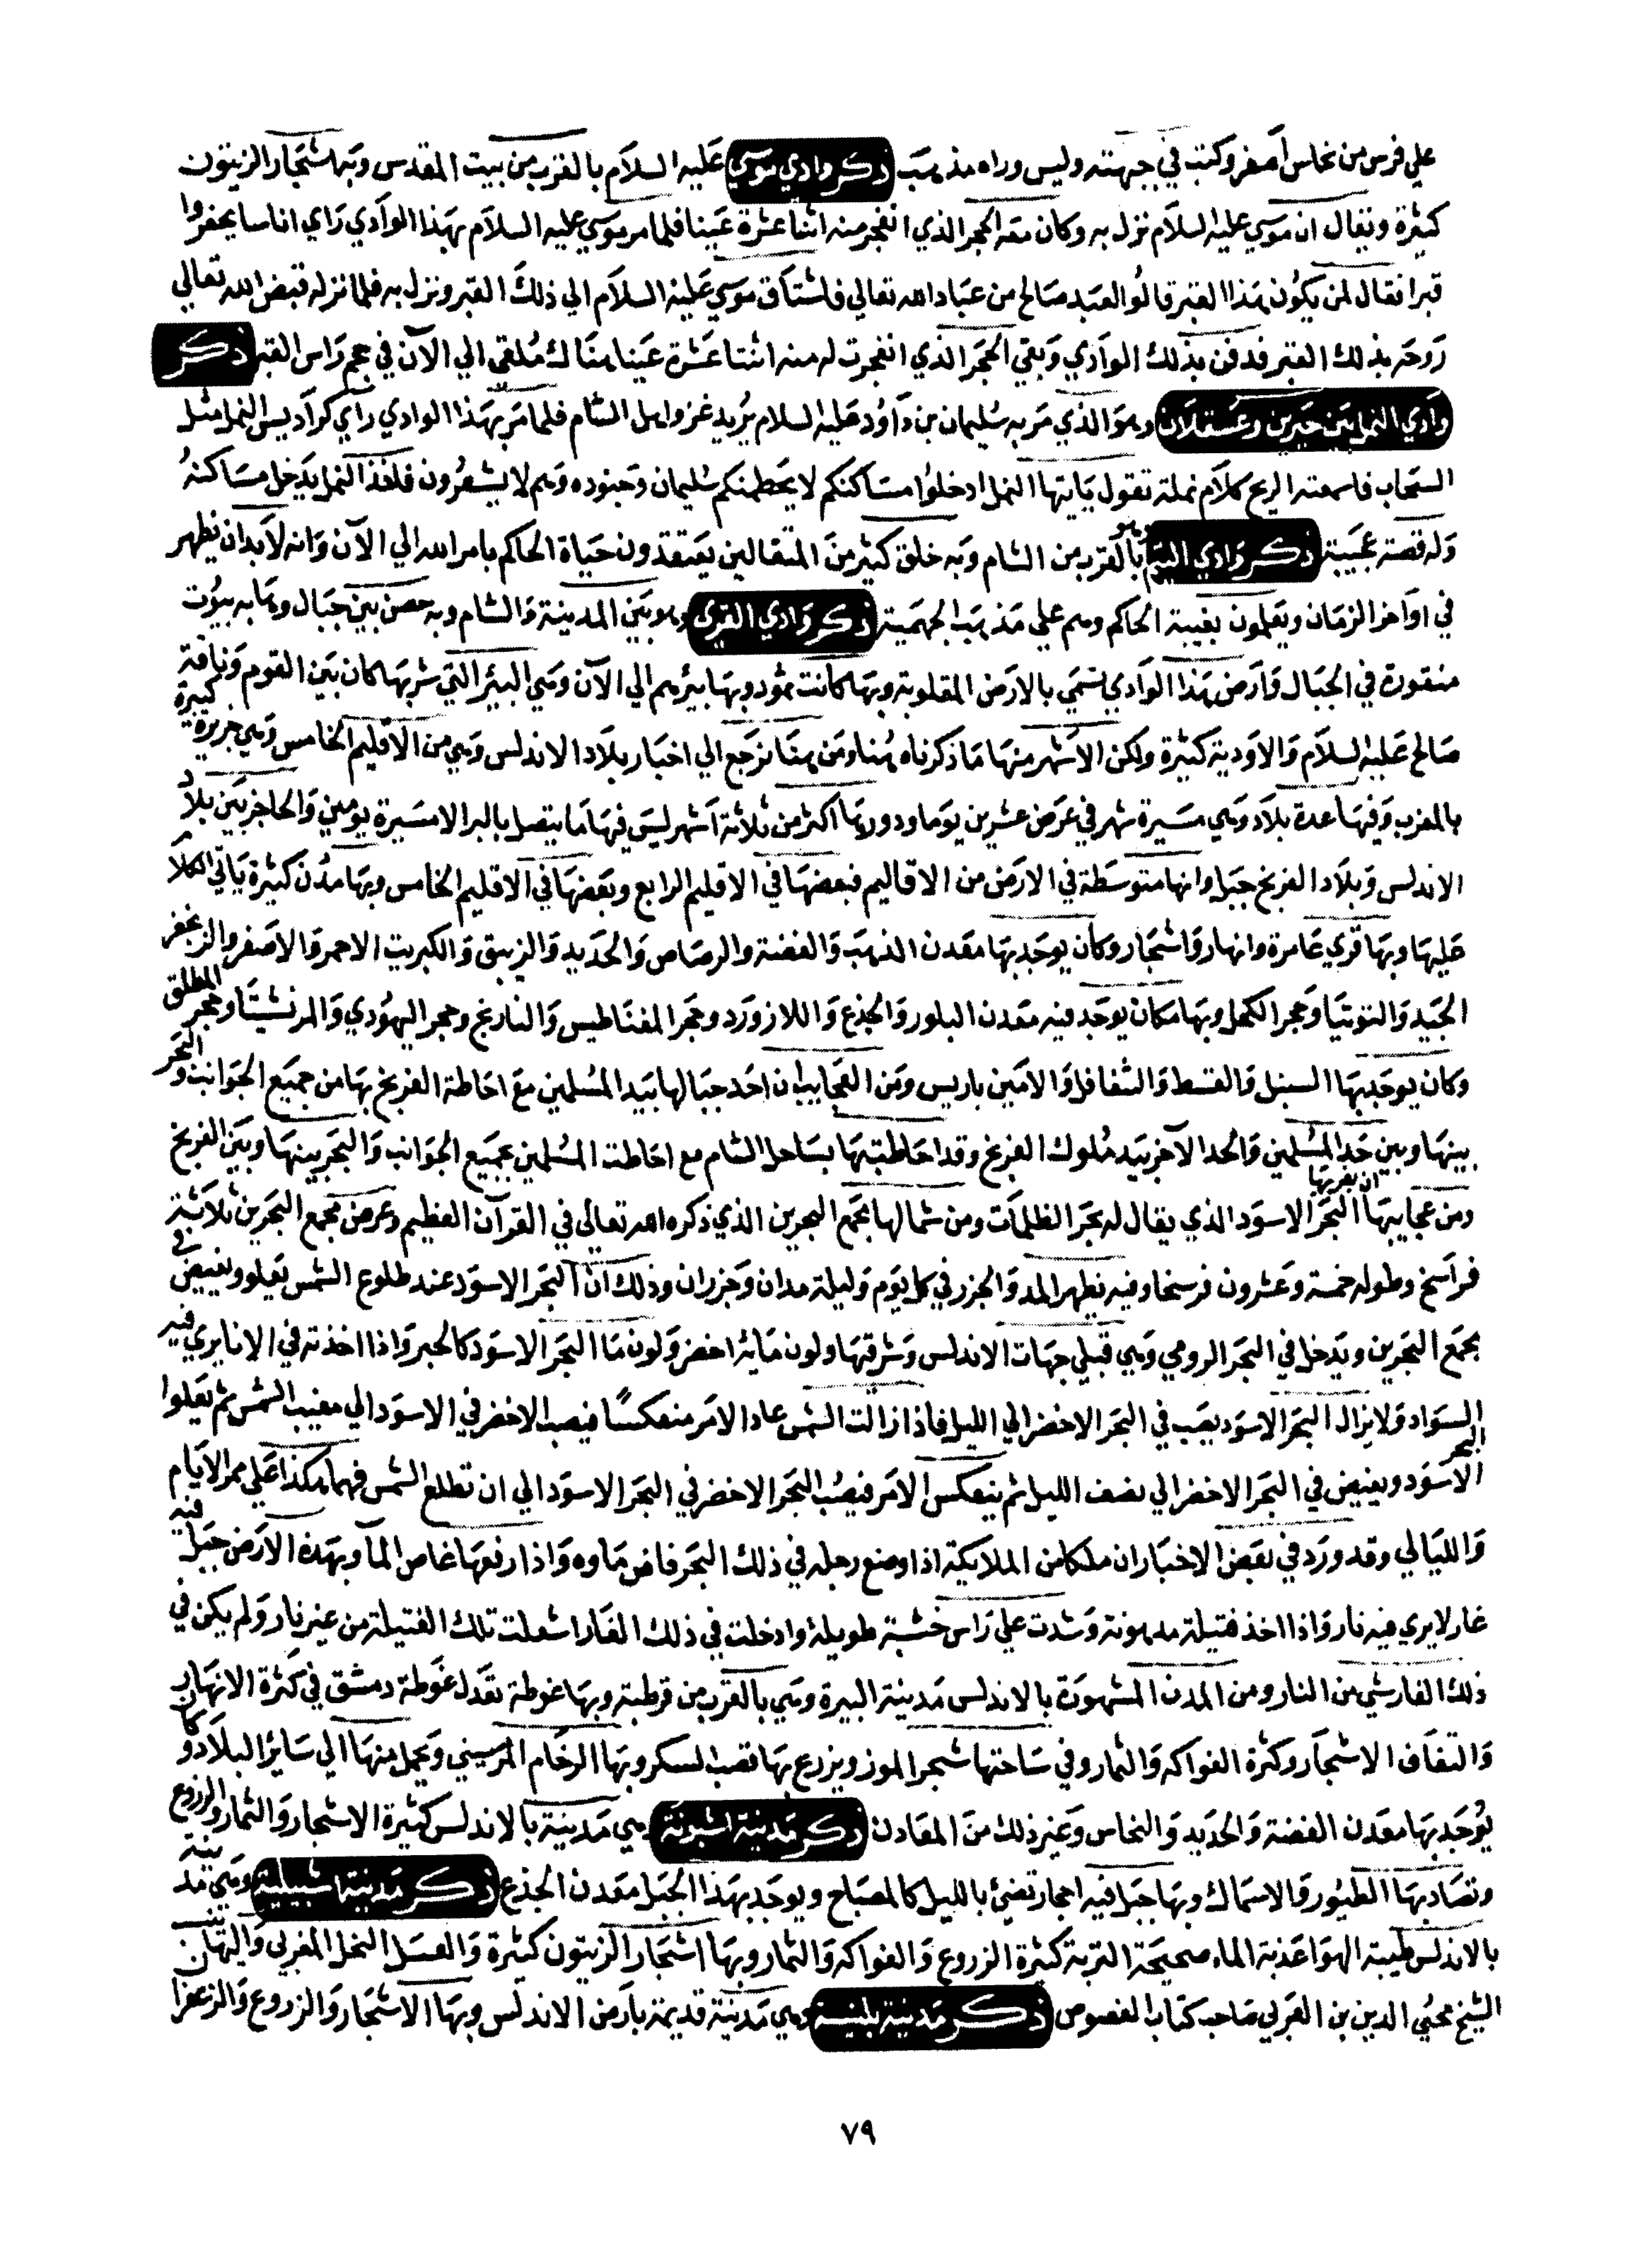 علي فرس من نحاس أصفر وكتب في جبهته وليس وراه مذهب ذكر وادي موسي عليه السلام بالقرب من بيت المقدس وبه اشجار الزيتون
كثيرة ويقال ان موسي عليه السلام نزل به وكان معه الحجر الذي انفجر منه اثنتا عشرة عينا فلما مر موسي عليه السلام بهذا الوادي راي اناسا يحفروا
قبرا فقال لمن يكون هذا القبر قالوا لعبد صالح من عباد الله تعالي فاشتاق موسي عليه السلام الي ذلك القبر ونزل به فلما نزله قبض الله تعالي
روحه بذلك القبر فدفن بذلك الوادي وبقي الحجر الذي انفجرت له منه اثنتا عشرة عينا هناك ملقي الي الآن في حجم راس القبر ذكر
وادي النمل بين جبرين وعسقلان وهو الذي مر به سليمان بن داود عليه السلام يريد غزو اهل الشام فلما مر بهذا الوادي راي كراديس النمل مثل
السحاب فاسمعته الريح كلام نملة تقول يايتها النمل ادخلوا مساكنكم لا يحطمنكم سليمان وجنوده وهم لا يشعرون فاخذ النمل يدخل مساكنه
وله قصة عجيبة ذكر وادي التيم وهو بالقرب من الشام وبه خلق كثير من المتقالين يعتقدون حياة الحاكم بامر الله الي الآن وانه لابد ان يظهر
في اواخر الزمان ويعلمون بغيبة الحاكم وهم علي مذهب الجهمية ذكر وادي القري وهو بين المدينة والشام وبه حصن بين جبال وبها به بيوت
منقورة في الجبال وارض هذا الوادي تسمي بالارض المقلوبة وبها كانت ثمود وبها بيرهم الي الآن وهي البئر التي شربها كان بين القوم وناقة
صالح عليه السلام والاودية كثيرة ولكن الاشهر منها ما ذكرناه هنا ومن هنا نرجع الي اخبار بلاد الاندلس وهي من الاقليم الخامس وهي جزيرة كبيرة
بالمغرب وفيها عدة بلاد وهي مسيرة شهر في عرض عشرين يوما ودورها اكثر من ثلاثة اشهر ليس فيها ما يتصل بالبر الا مسيرة يومين والحاجز بين بلاد
الاندلس وبلاد الفرنج جبل وانها متوسطة في الارض من الاقاليم فبعضها في الاقليم الرابع وبعضها في الاقليم الخامس وبها مدن كثيرة ياتي الكلام
عليها وبها قري عامرة وانهار واشجار وكان يوجد بها معدن الذهب والفضة والرصاص والحديد والزيبق والكبريت الاحمر والاصفر والزنجفر
الجيد والتوتيا وحجر الكحل وبها مكان يوجد فيه معدن البلور والجذع واللازورد وحجر المغناطيس والنارنج وحجر اليهودي والمرنشيتا وحجر المطلق
وكان يوجد بها السنبل والقسط والثفافل والامين باريس ومن العجايب ان احد جبالها بيد المسلمين مع احاطة الفرنج بها من جميع الجوانب والبحر
بينها وبين حد المسلمين والحد الآخر بيد ملوك الفرنج وقد احاطت بها بساحل الشام مع احاطت المسلمين بجميع الجوانب والبحر بينها وبين الفرنج
ومن عجايبها ان بغربها البحر الاسود الذي يقال له بحر الظلمات ومن شمالها مجمع البحرين الذي ذكره الله تعالي في القرآن العظيم وعرض مجمع البحرين ثلاثة
فراسخ وطوله خمسة وعشرون فرسخا وفيه يظهر المد والجزر في كل يوم وليلة مدان وجزران وذلك ان البحر الاسود عند طلوع الشمس يعلو ويفيض في
مجمع البحرين ويدخل في البحر الرومي وهي قبلي جهات الاندلس وشرقيها ولون مائه اخضر ولون ما البحر الاسود كالحبر واذا اخذته في الانا يري فيه
السواد ولا يزال البحر الاسود يصب في البحر الاخضر الي الليل فاذا زالت الشمس عاد الامر منعكسا فيصب الاخضر في الاسود الي مغيب الشمس ثم يعلوا
البحر الاسود ويفيض في البحر الاخضر الي نصف الليل ثم ينعكس الامر فيصب البحر الاخضر في البحر الاسود الي ان تطلع الشمس فهما هكذا علي ممر الايام
والليالي وقد ورد في بعض الاخبار ان ملكا من الملايكة اذا وضع رجله في ذلك البحر فاض ماوه واذا رفعها غاص المآ وبهذه الارض جبل فيه
غار لا يري فيه نار واذا اخذ فتيلة مدهونة وشدت علي راس خشبة طويلة وادخلت في ذلك الغار اشعلت تلك الفتيلة من غير نار ولم يكن في
ذلك الغار شي من النار ومن المدن المشهورة بالاندلس مدينة البيرة وهي بالقرب من قرطبة وبها غوطة تعدل غوطة دمشق في كثرة الانهار
والتفاف الاشجار وكثرة الفواكه والثمار وفي ساحتها شجر الموز ويزرع بها قصب السكر وبها الرخام المرسيني ويحمل منها الي سائر البلاد وكان
يوجد بها معدن الفضة والحديد والنحاس وغير ذلك من المعادن ذكر مدينة اشبونة وهي مدينة بالاندلس كثيرة الاشجار والثمار والزروع
وتصاد بها الطيور والاسماك وبها جبل فيه احجار تضئ بالليل كالمصباح ويوجد بهذا الجبل معدن الجذع ذكر مدينة اشبيلية وهي مدينة
بالاندلس طيبة الهوا عذبة الماء صحيحة التربة كثيرة الزروع والفواكه والثمار وبها اشجار الزيتون كثيرة والعسل النحل المغربي واليها ينسب
الشيخ محيي الدين بن العربي صاحب كتاب الفصوص ذكر مدينة بلنسية وهي مدينة قديمة بارض الاندلس وبها الاشجار والزروع والزعفران
٧٩